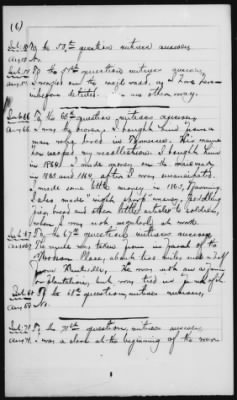 (6)
Int. 58. To the 58th question witness answers,
Ans. 58. No.
Int. 59. To the 59th question witness answers,
Ans. 59. I myself and the neighbors, as I have here-
inbefore detailed. in no other way.
Int. 66. To the 66th question, witness answers,
Ans. 66. I was the owner. I bought him from a
man who lived in Tennessee. His name
has escaped my recollection. I bought him
in 1864. I made money on the
in 1863 and 1864, after I was emancipated.
I made some little money in 1865, farming.
I also made "night shop" money, peddling
pies, bread and other little articles to soldiers,
when I was not regularly at work.
Int. 67. To the 67th question witness answers,
Ans. 67. The mule was taken from in front of the
Place, about two miles and a half
from Huntsville. He was not on a farm
or plantation, but was tied in front of it.
Int. 68. To the 68th question, witness answers,
Ans. 68. No.
Int. 71. To the 71st question, witness answers,
Ans. 71. I was a slave at the beginning of the war.